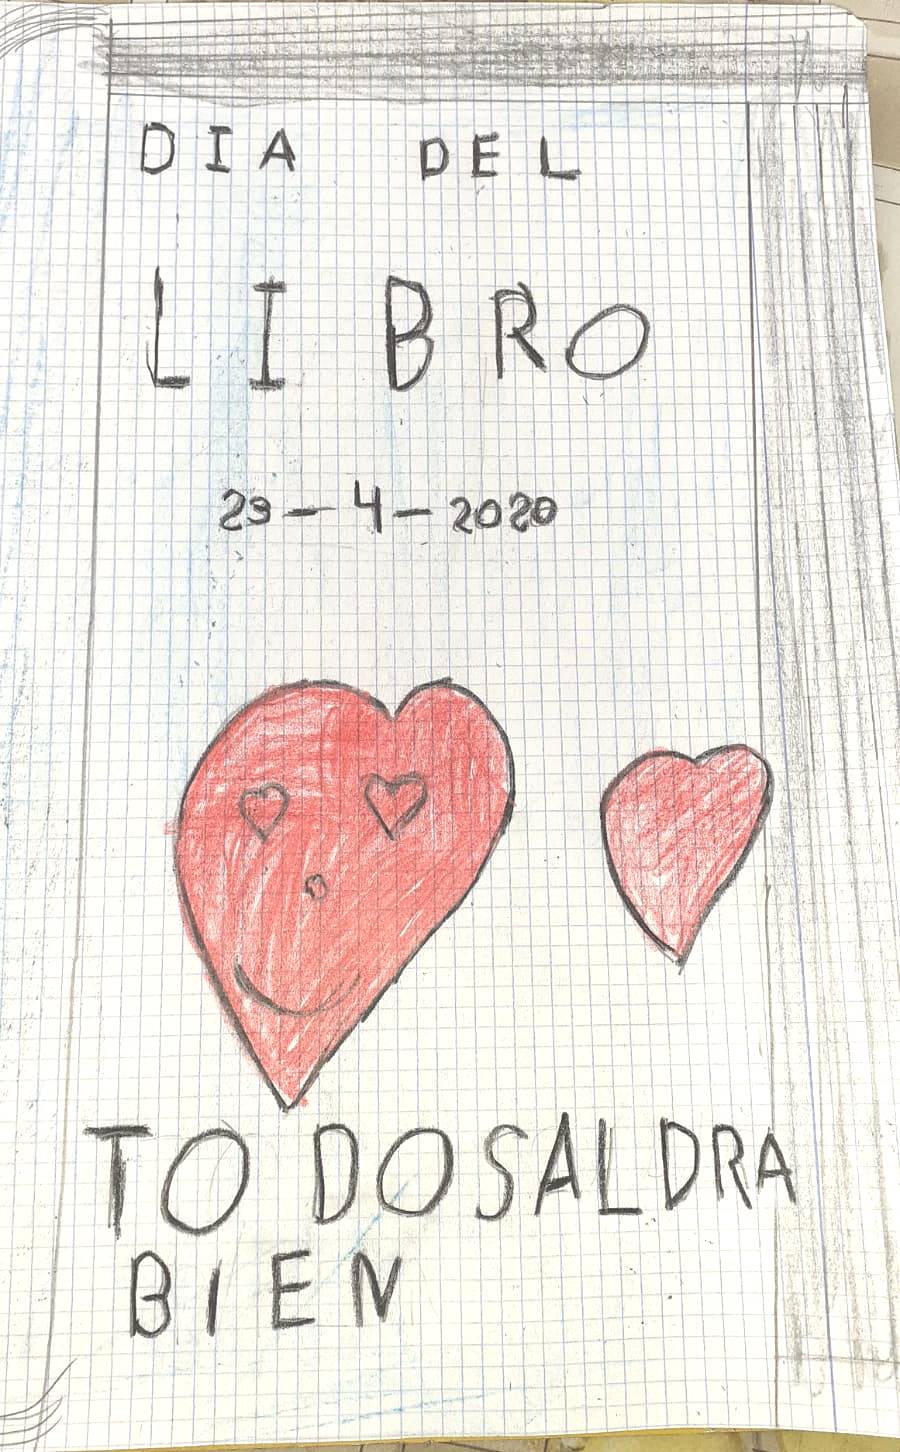 DIA DEL
LIBRO
23-4-2020
TODO SALDRA
BIEN